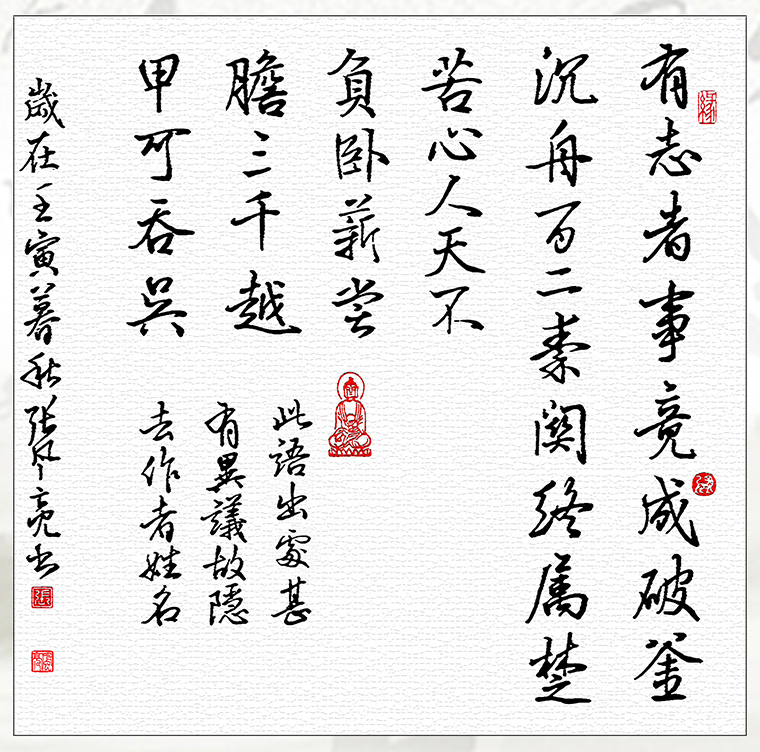 有志者事竟成破釜
沉舟百二秦關終属楚
苦心人天不
負卧薪嘗
膽三千越
甲可吞吳
此語出處甚
有異議故隱
去作者姓名
歲在壬寅暮秋張亮书